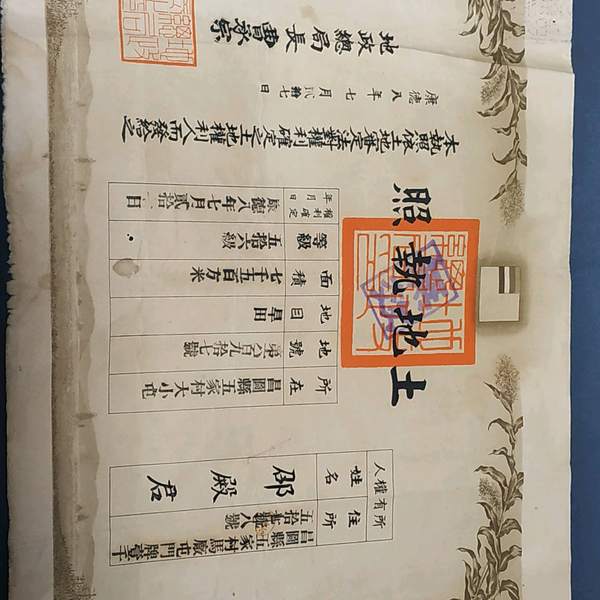 土地執照
所有權人
住所
昌圖縣五家村馬廠屯門牌壹千
姓名
邵殿君
所在
昌圖縣五家村大小屯
地號
六百九拾七號
地目
旱田
面積
七千五百方米
等級
五拾六級
權利確定年月日
康德八年七月貳拾日
本執照依土地審定法對權利確定之土地權利人而發給之
康德八年七月貳拾七日
地政總局長 曹承宗